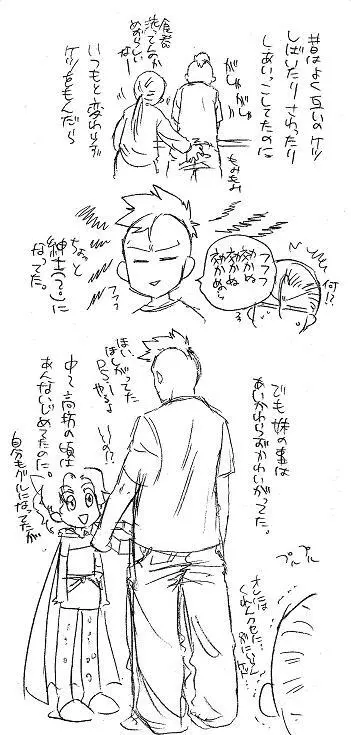 昔はよく互いのケツ
しばいたりさわったり
しあいっこしてたのに
がしゃ
がしゃ
食器
洗ってんの
めずらしい
な
いつもと変わらず
ケツをもんだら
もみもみ
フフフ
効かぬ
効かぬ
効かぬわ
何!?
フフフ
ちょっと
紳士(?)に
なってた。
でも妹の事は
あいかわらずかわいがってた。
ほい、
ほしがってた
DSやるよ
いいの!?
中〜高坊の頃は
あんないじめてたのに。
自分もグルになってたが
プル
プル
オレには
くれんクセに…